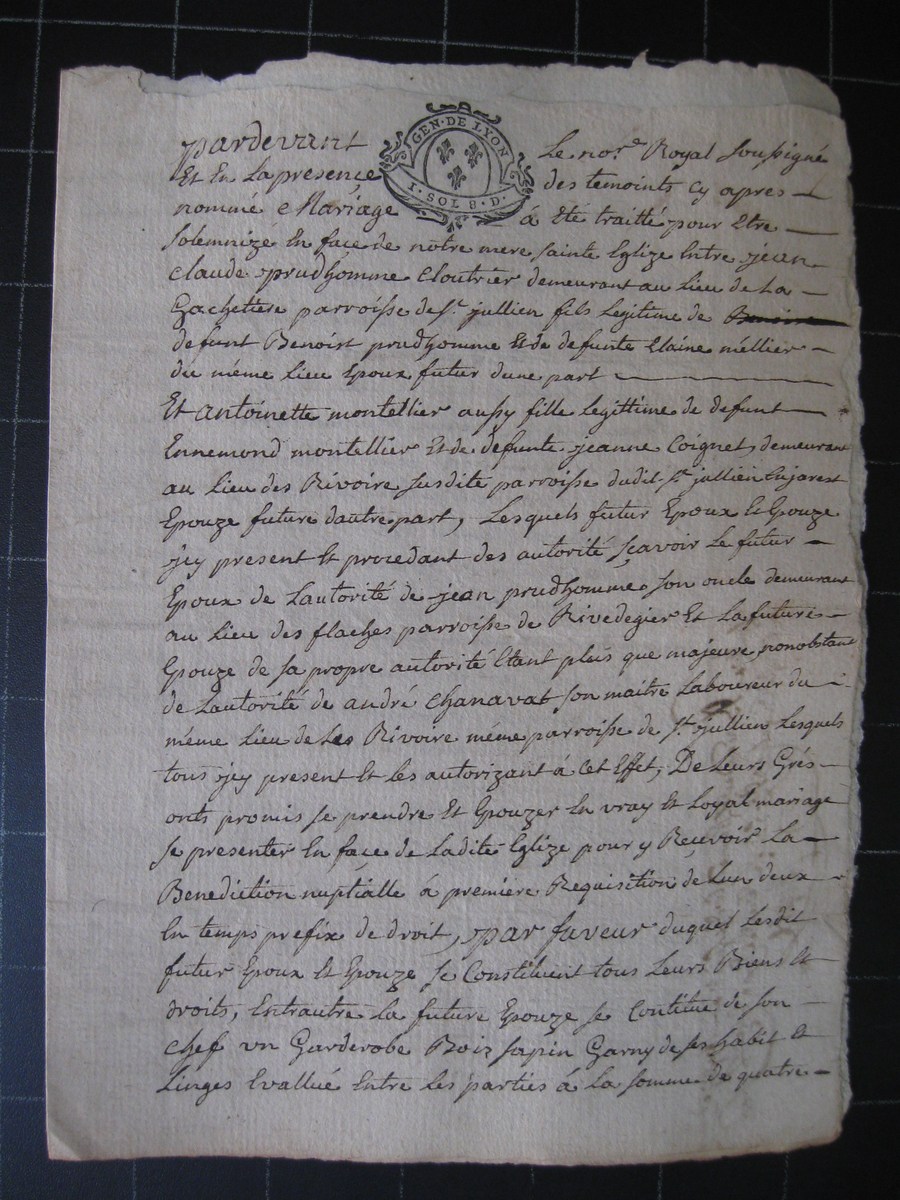 GEN·DE LYON
1·SOL 8·D·
pardevant Le no.re Royal soussigné
Et En La presence des temoints cy apres
nommé Mariage á Eté traitté pour Etre
solemnizé En face de nôtre mere sainte Eglize Entre jean
claude prudhomme Cloutrier demeurant au Lieu de La
Gachettere parroisse de St. jullien fils Legitime de
defunt Benoist prudhomme Et de defunte Claine mellier
du même Lieu Epoux futur dune part
Et antoinette montellier aussy fille Legittime de defunt
Ennemond montellier Et de defunte jeanne Coignet, demeurant
au Lieu des Rivoire susdite parroisse dudit St. jullien Enjarest
Epouze future dautre part, Lesquels futur Epoux Et Epouze
jcy present Et procedant des autorité sçavoir Le futur
Epoux de Lautorité de jean prudhomme son oncle demeurant
au Lieu des flaches parroisse de Rivedegier Et La future
Epouze de sa propre autorité Etant plus que majeure nonobstant
de Lautorité de andré Chanavat son maitre Laboureur du
même Lieu de Les Rivoire même parroisse de St. jullien Lesquels
tous jcy present Et Les autorizant á cet Effet, De Leurs Grés
onts promis se prendre Et Epouzer En vray Et Loyal mariage
se presenter En façe de Ladite Eglize pour y Reçevoir La
Benediction nuptialle á premiere Requisition de Lun deux
En temps prefix de droit, par faveur duquel Lesdit
futur Epoux Et Epouze se Constituent tous Leurs Biens Et
droits, Entrautre La future Epouze se Contitue de son
chef un Garderobe Bois sapin Garny de ses habit Et
Linges Evallué Entre Les parties á La somme de quatre